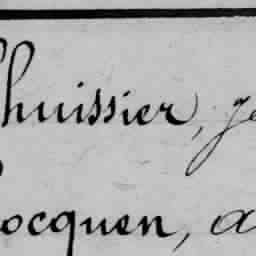 huissier, je
ocquen, a